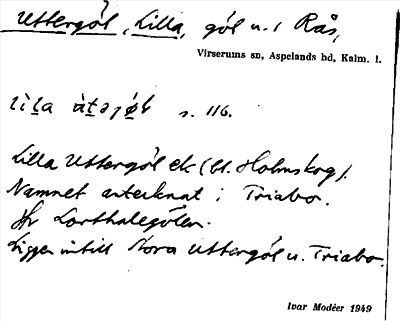 Uttergöl, Lilla, göl u. / Rås,
Virserums sn, Aspelands hd, Kalm. l.
s. 116.
Lilla Uttergöl ek (bl. Holmskog).
Namnet antecknat i Triabo.
Hr Lorthalegölen.
Ligger intill Stora Uttergöl u. Triabo.
Ivar Modéer 1949